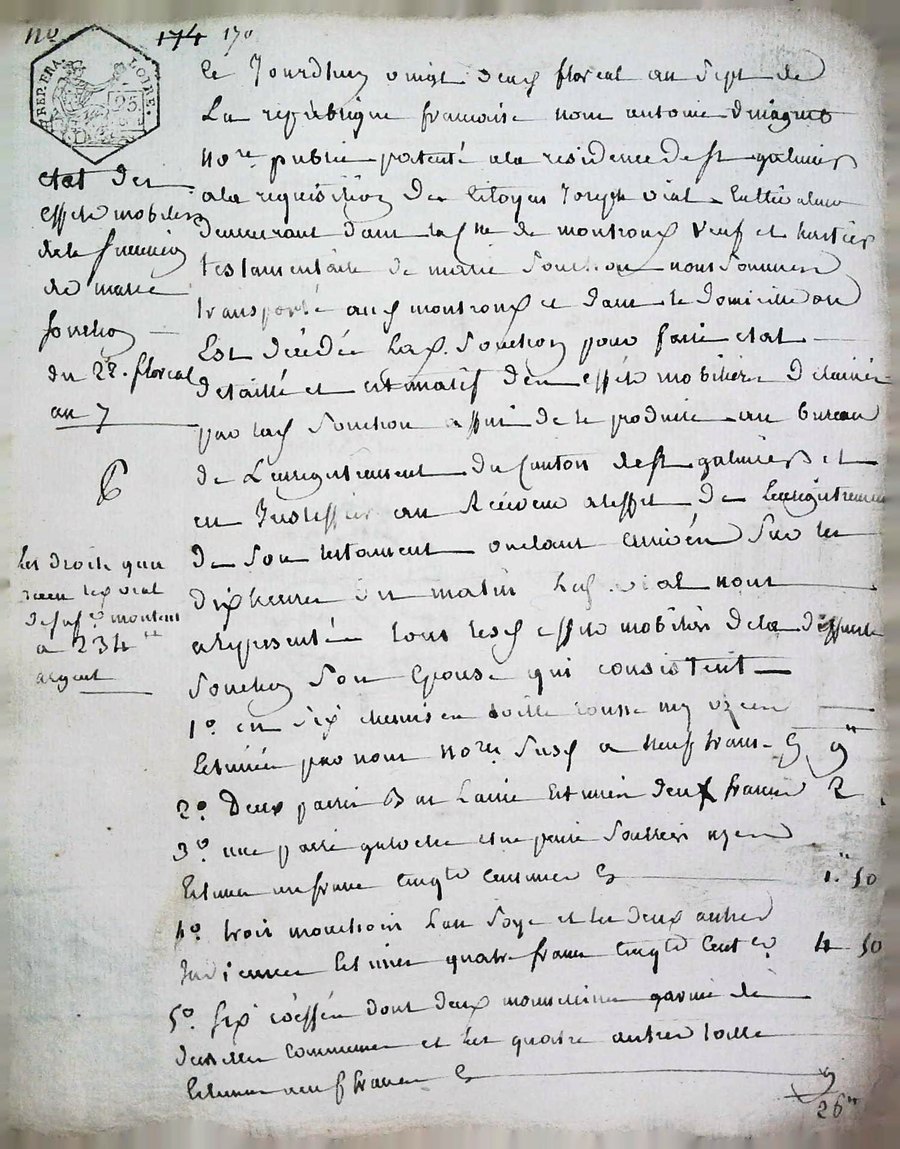 no. 174 170
REP. FRA.
LOIRE.
25
etat des
effets mobiliers
de la succession
de marie
souchon
du 22. floreal
an 7
Les droits
vial
montent
a 234
argent
Ce Jourdhuy vingt deux floreal an sept de
La republique francaise nous antoine
nore public patenté a la residence de st galmier
a la requisition du Citoyen Joseph vial Cultivateur
demeurant dans la cne de montrond veuf et heritier
testamentaire de marie Souchon nous Sommes
transporté aud montrond et dans le domicille ou
Est décédée lad. Souchon pour faire etat
detaillé et estimatif des effets mobiliers delaissés
par lad Souchon affin de le produire au bureau
de Lenregistrement du Canton de st galmier et
en Justiffier au Receveur a leffet de Lenregistrement
de Son testament ou etant arrivés Sur les
dix heures du matin Led. vial nous
a representé tous lesd effets mobiliers de la deffunte
Souchon Son Epouse qui consistent
1o. en Six chemises toille rousse my uzées
Estimées par nous nore Susd a neuf francs 9"
2o. Deux paires Bas Laine Estimés deux francs 2
3o. une paire galoche et une paire Soulliers uzées
Estimés un franc Cinqte Centimes 1." 50
4o. trois mouchoirs L'un Soye et les deux autres
Indiennes Estimés quatre francs Cinqte Cent es 4 50
5o. Six coeffes dont deux mousseline garnie de
dentelles Communes et les quatre autres toille
Estimées neuf francs 9
26"